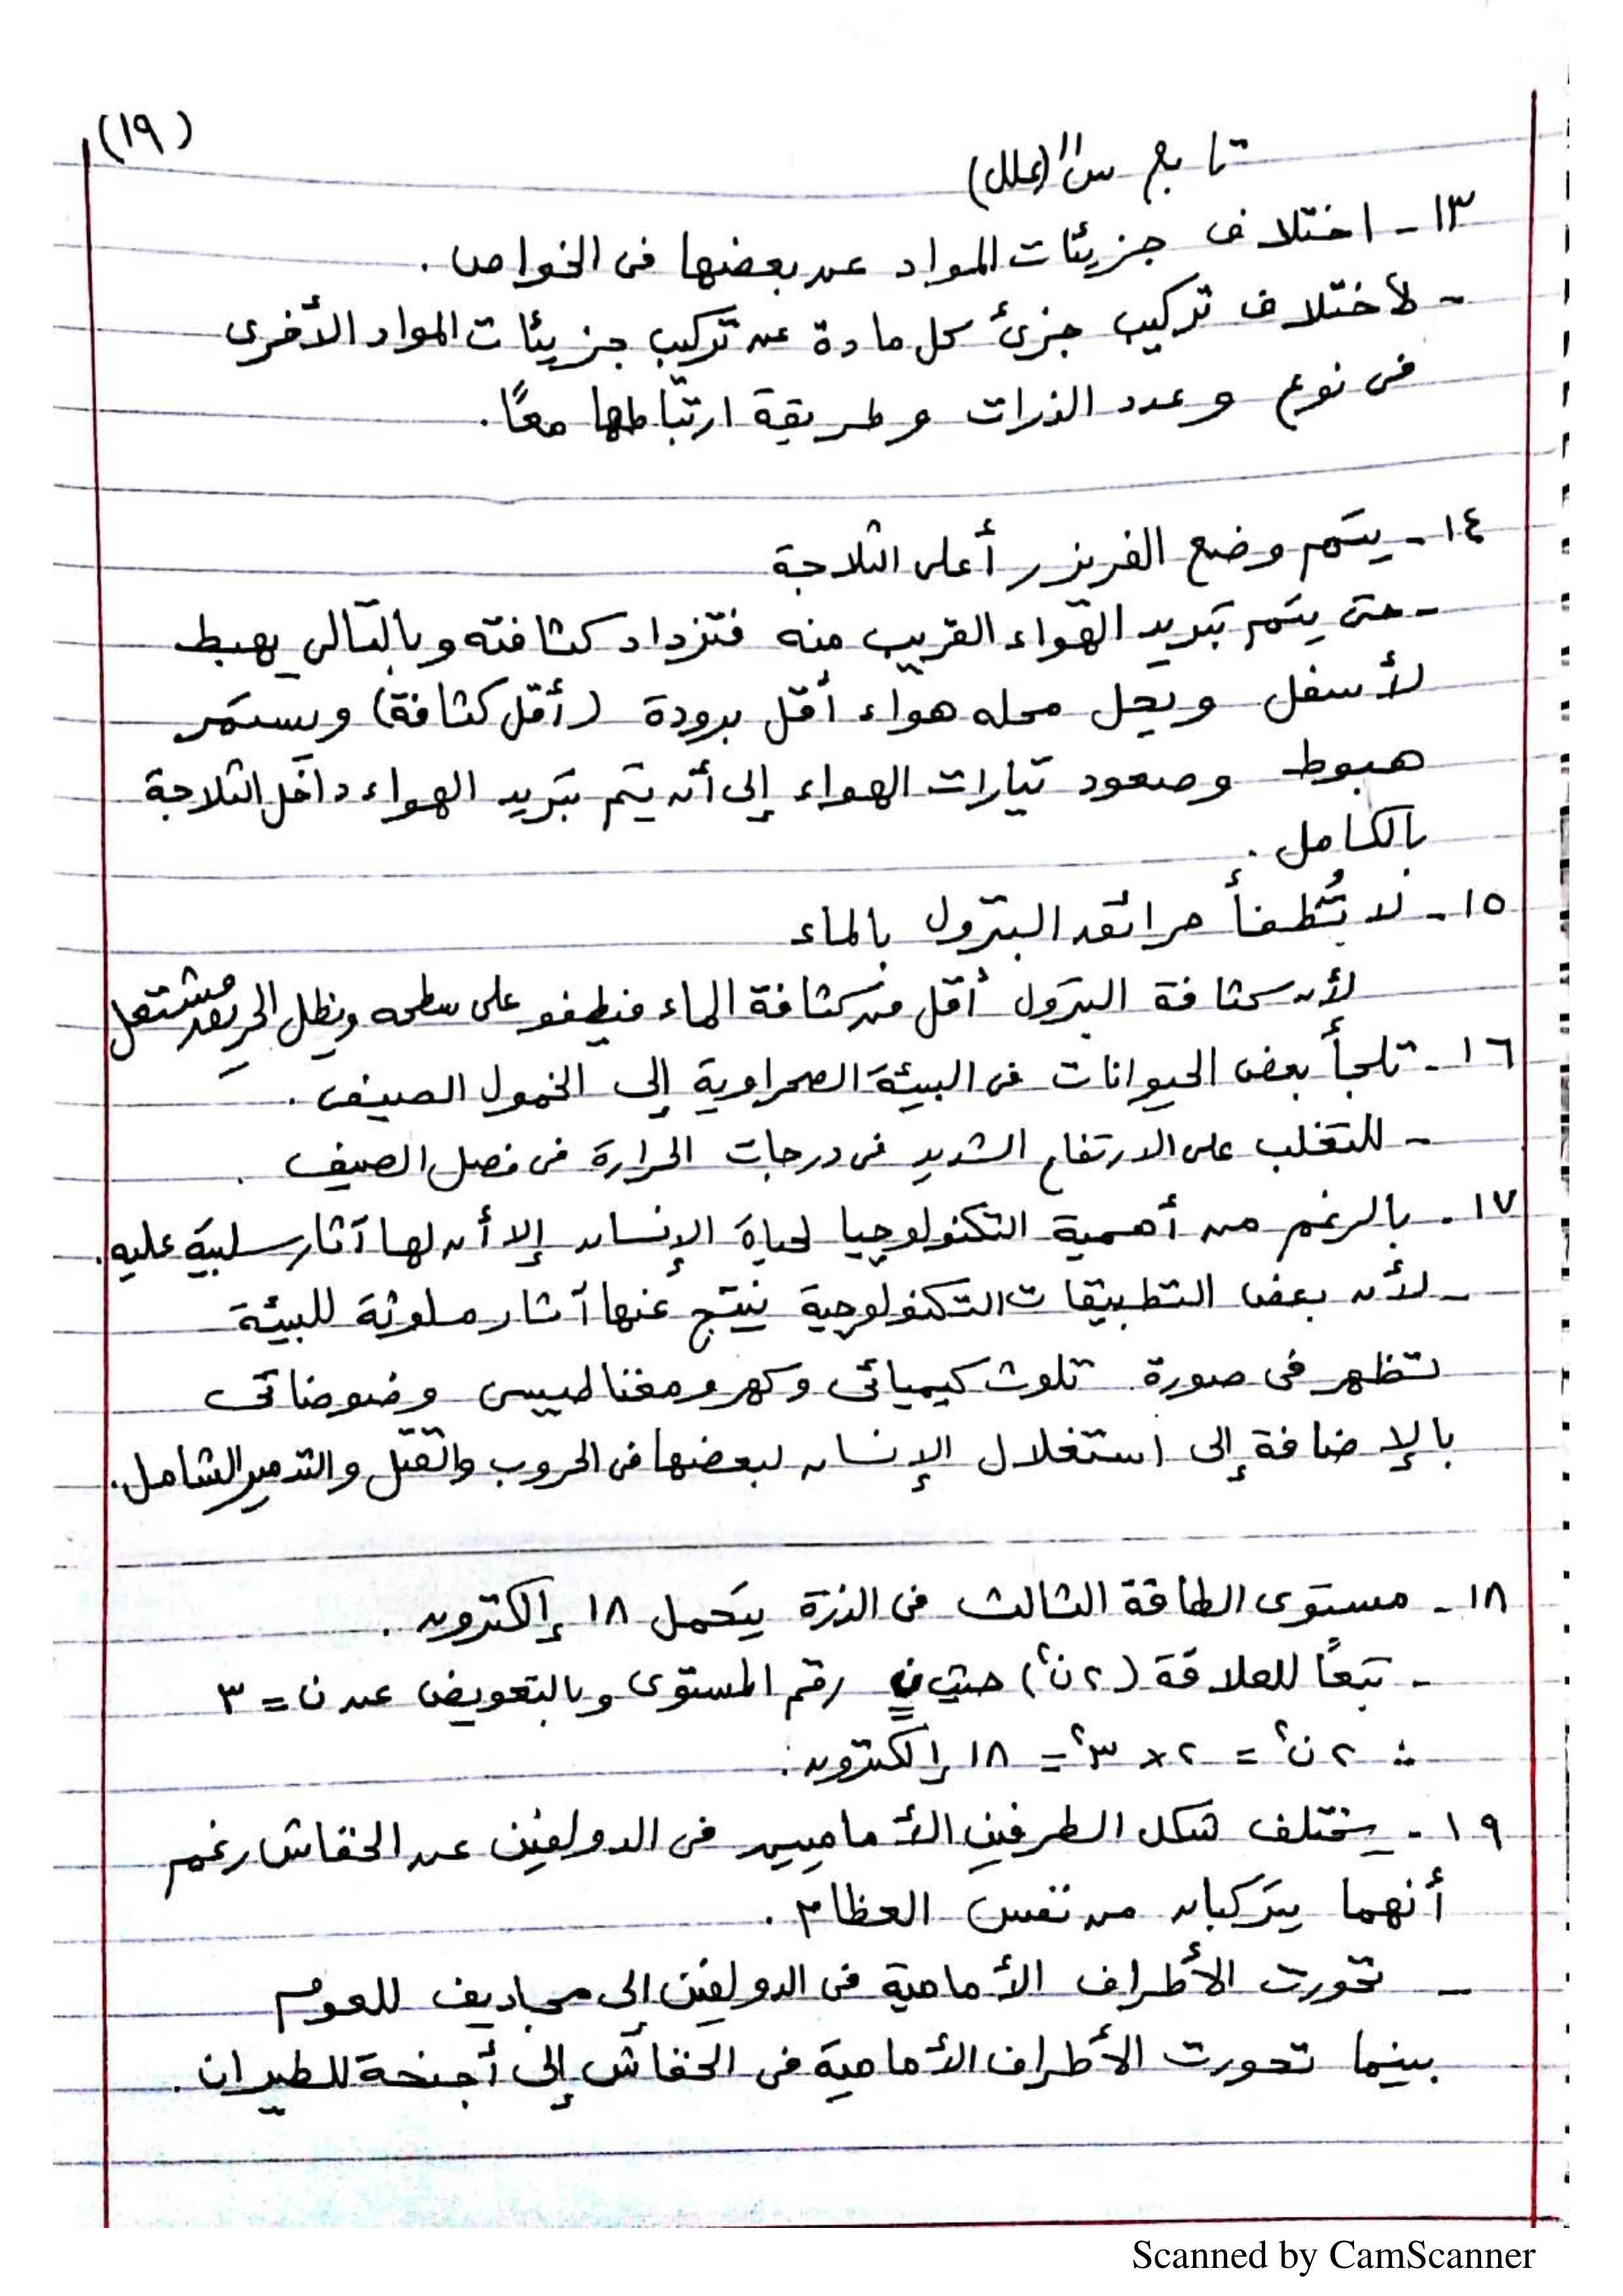 (١٩)
تابع س١١ (علل)
١٣- اختلاف جزيئات المواد عن بعضها فى الخواص.
- لأختلاف تركيب جزئ كل مادة عن تركيب جزيئات المواد الأخرى
فى نوع وعدد الذرات وطريقة ارتباطها معًا.
١٤- يتم وضع الفريزر أعلى الثلاجة
- حتى يتم تبريد الهواء القريب منه فتزداد كثافته وبالتالى يهبط
لأسفل ويحل محله هواء أقل برودة (أقل كثافة) ويستمر
هبوط وصعود تيارات الهواء إلى أن يتم تبريد الهواء داخل الثلاجة
بالكامل.
١٥- لا تُطفأ حرائق البترول بالماء
لأن كثافة البترول أقل من كثافة الماء فيطفو على سطحه ويظل الحريق مشتعل
١٦- تلجأ بعض الحيوانات فى البيئة الصحراوية إلى الخمول الصيفى.
- للتغلب على الارتفاع الشديد فى درجات الحرارة فى فصل الصيف.
١٧- بالرغم من أهمية التكنولوجيا لحياة الإنسان إلا أن لها آثار سلبية عليه.
- لأن بعض التطبيقات التكنولوجية ينتج عنها آثار ملوثة للبيئة
تظهر فى صورة تلوث كيميائى وكهرومغناطيسى وضوضائى
بالإضافة إلى استغلال الإنسان لبعضها فى الحروب والقتل والتدمير الشامل.
١٨- مستوى الطاقة الثالث فى الذرة يتحمل ١٨ إلكترون.
- تبعًا للعلاقة (٢ن٢) حيث ن رقم المستوى وبالتعويض عن ن = ٣
∴ ٢ن٢ = ٢ × ٣٢ = ١٨ إلكترون.
١٩- يختلف شكل الطرفين الأماميين فى الدولفين عن الخفاش رغم
أنهما يتركبان من نفس العظام.
- تحورت الأطراف الأمامية فى الدولفين إلى مجاديف للعوم
بينما تحورت الأطراف الأمامية فى الخفاش إلى أجنحة للطيران.
Scanned by CamScanner